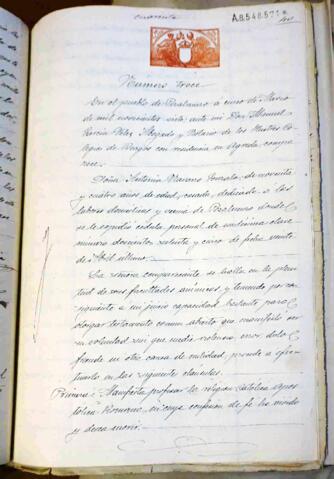 cuarenta
A8.548.571
Numero trece
En el pueblo de a cinco de Marzo
de mil novecientos veinte ante mi Don Manuel
García Abogado y Notario de los Ilustres Co-
legio de Burgos con residencia en compa-
rece
Doña Antonia Navarro de noventa
y cuatro años de edad, casada, dedicada a las
labores domesticas y vecina de donde
se le espidio cedula personal de clase
numero doscientos setenta y cinco de fecha veinte
de Abril ultimo.
La señora compareciente se halla en la pleni-
tud de sus facultades animicas, y teniendo por con-
siguiente a mi juicio capacidad bastante para
otorgar testamento comun abierto que manifiesta ser
su voluntad sin que medie violencia, error, dolo
fraude ni otra causa de nulidad, procede a
en las siguientes clausulas.
Primera: Manifiesta profesar la religion Catolica Apos-
tolica Romana, en cuya confesion de fe ha vivido
y desea morir.